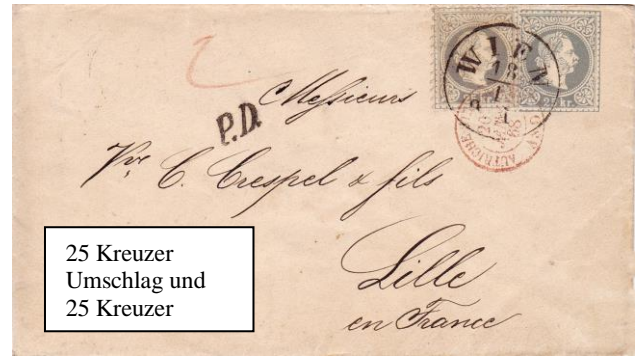 WIEN
18
1
AUTRICHE
kr.
Messieurs
P.D.
Vve C. Crespel & fils
Lille
en France
25 Kreuzer
Umschlag und
25 Kreuzer